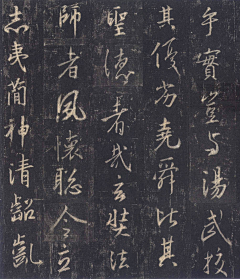 乎實豈與湯武校
其優劣堯舜比其
聖德者哉玄奘法
師者夙懷聰令立
志夷簡神清齠齔